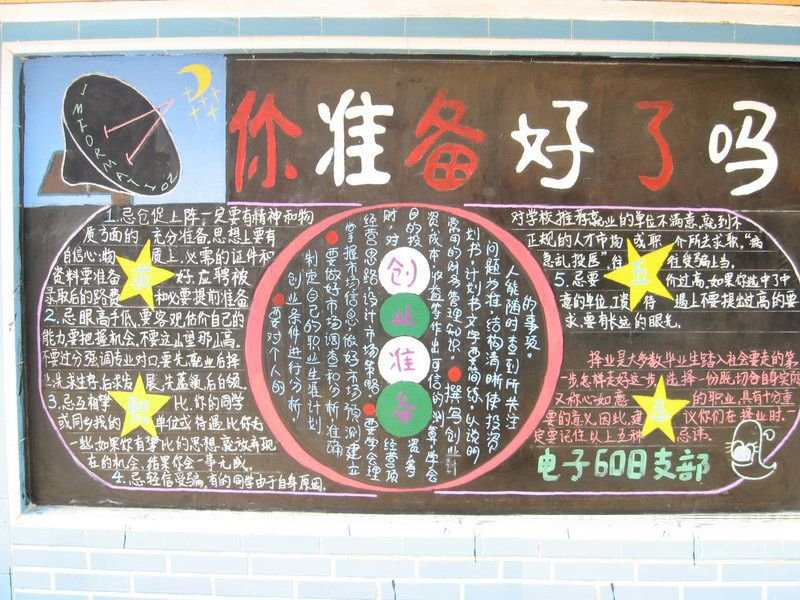 INFORMATION
你准备好了吗
1.忌仓促上阵一定要有精神和物
质方面的 充分准备,思想上要有
自信心;物 质上,必需的证件和
资料要准备 求 好,应聘被
录取后的路费 和必要提前准备
2.忌眼高手低,要客观估价自己的
能力,要把握机会,不要这山望那山高。
不要过分强调专业对口,要先就业后择
业,先求生存,后求发展,先蓝领,后白领。
3.忌互相攀 职 比,你的同学
或同乡找的 单位或待遇比你好
一些,如果你有攀比的思想,就放弃现
在的机会,结果你会一事无成。
4.忌轻信受骗,有的同学由于自身原因,
创业准备
的事项。
人能随时查到所关注
问题为准,结构清晰使投资
划书,计划书文字要简练,以说明
常用的财务管理知识。撰写创业计
资成本、收益等作出可信的测算,学会
目的投 资者
时,对 营项
经营思路,设计市场策略。要学会理
掌握市场信息,做好市场预测,建立
要做好市场调查和分析,准确
制定自己的职业生涯计划
创业条件进行分析,
要对个人的
对学校推荐就业的单位不满意,就到不
正规的人才市场 或职 介所去求职,“病
急乱投医” 往 往受骗上当。
5.忌要 五 价过高,如果你选中了中
意的单位,工资 待 遇上不要提出过高的要
求,要有长远的眼光。
择业是大多数毕业生踏入社会要走的第
一步,怎样走好这一步,选择一份既切合自身实际
又称心如意 忌 的职业,具有十分重
要的意义,因此,建 议你们在择业时,一
定要记住以上五种 忌讳。
电子608支部